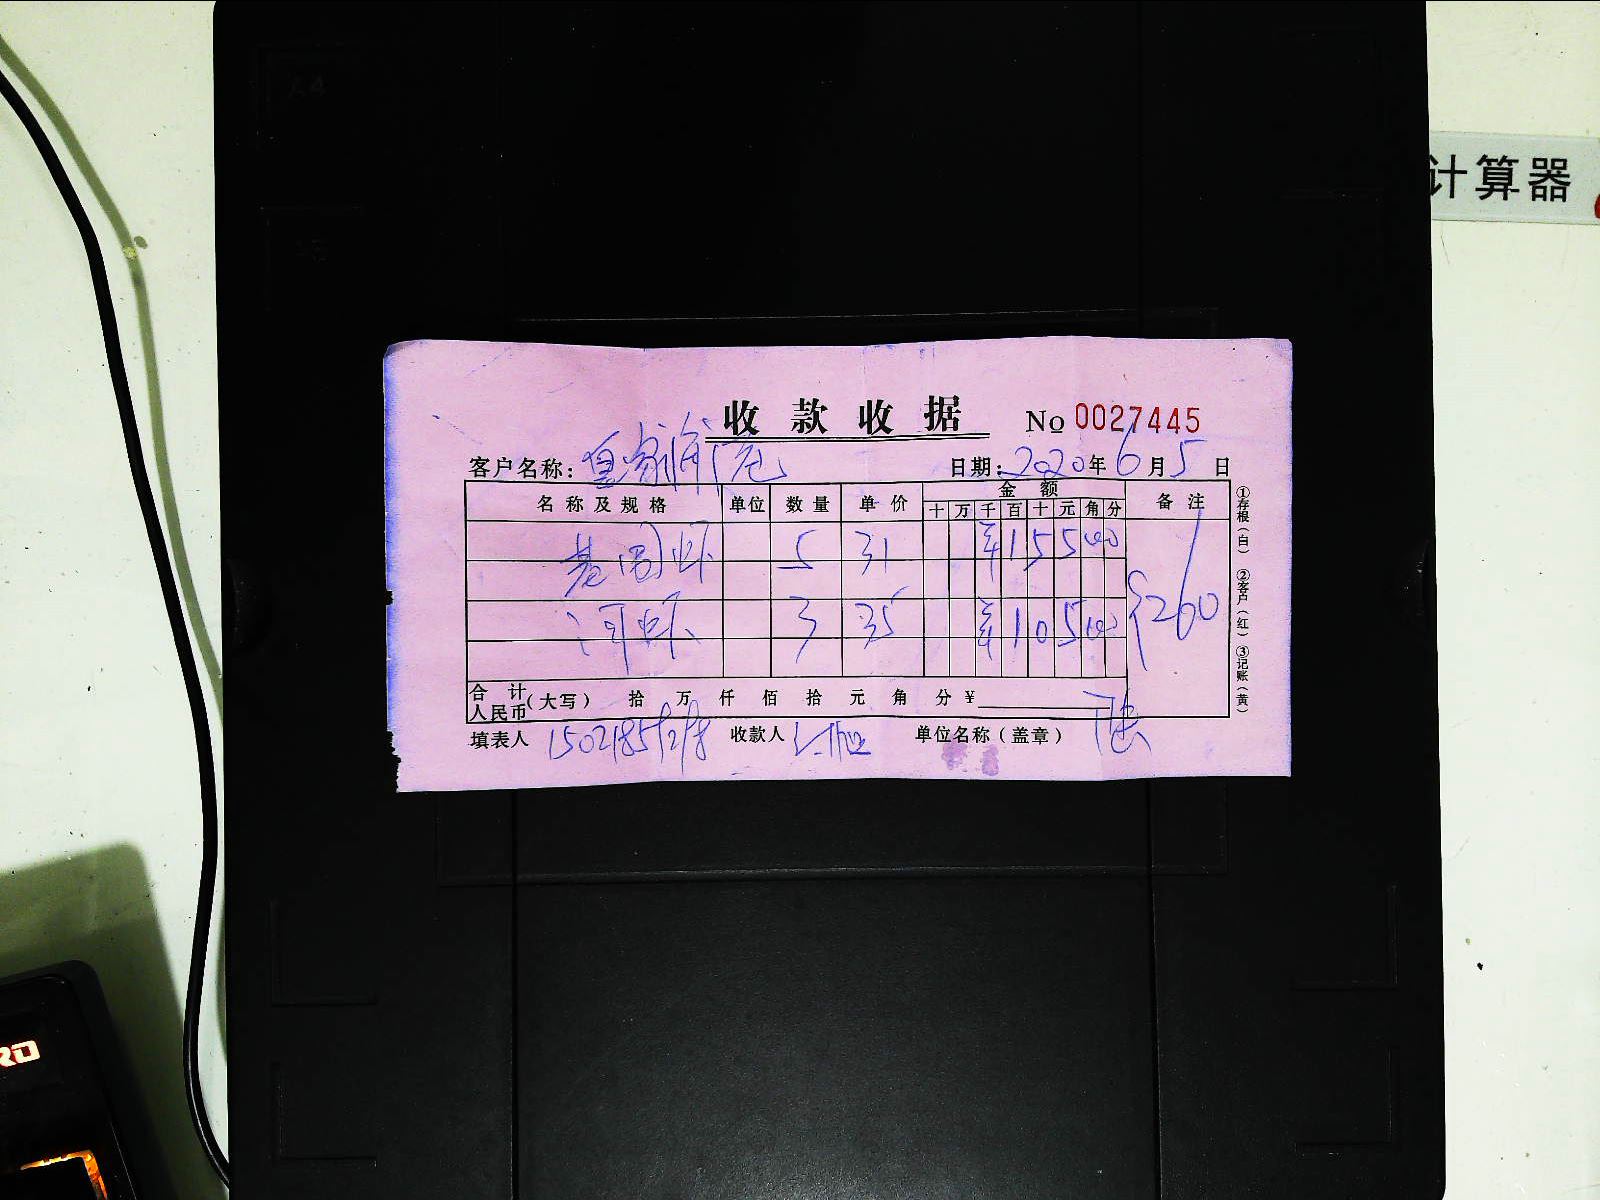 计算器
收款收据 No 0027445
客户名称：皇家
日期：2020年6月5日
名称及规格 单位 数量 单价 金额 备注
十 万 千 百 十 元 角 分
基围虾 5 31 ¥ 1 5 5 00
河虾 3 35 ¥ 1 0 5 00
260
合计人民币（大写） 拾 万 仟 佰 拾 元 角 分 ¥
填表人 收款人 单位名称（盖章）
①存根（白） ②客户（红） ③记账（黄）